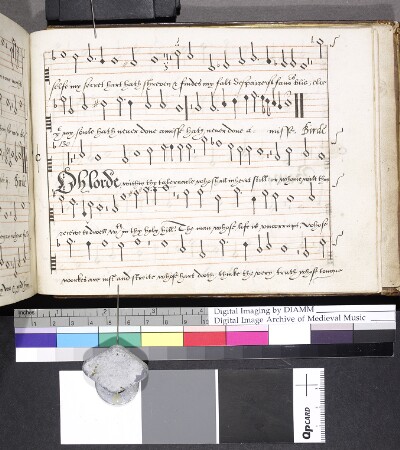 selfe my secret hart hath shreven & findes my salt
my soule hath never done amisse hath never done a misse. Birde
O Lorde within thy tabernacle who shall inherit still: or whome wilt thou
receive to dwell, in thy holy hill? The man whose life is uncorrupt, whose
workes are just and streite whose hart doth thinke the very truth whose tongue
inches
1 2 3 4 5 6 7 8
Digital Imaging by DIAMM
Digital Image Archive of Medieval Music
QPCARD